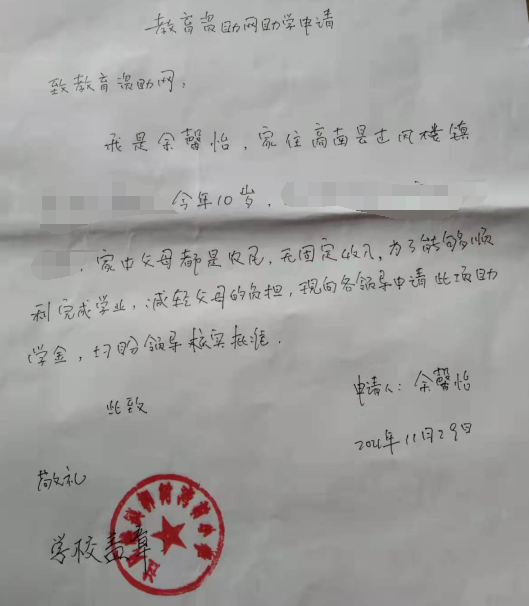 教育资助网助学申请
致教育资助网：
我是余馨怡，家住商南县过风楼镇
今年10岁，
，家中父母都是农民，无固定收入，为了能够顺
利完成学业，减轻父母的负担，现向各领导申请此项助
学金，切盼领导核实批准．
申请人：余馨怡
2021年11月29日
此致
敬礼
学校盖章